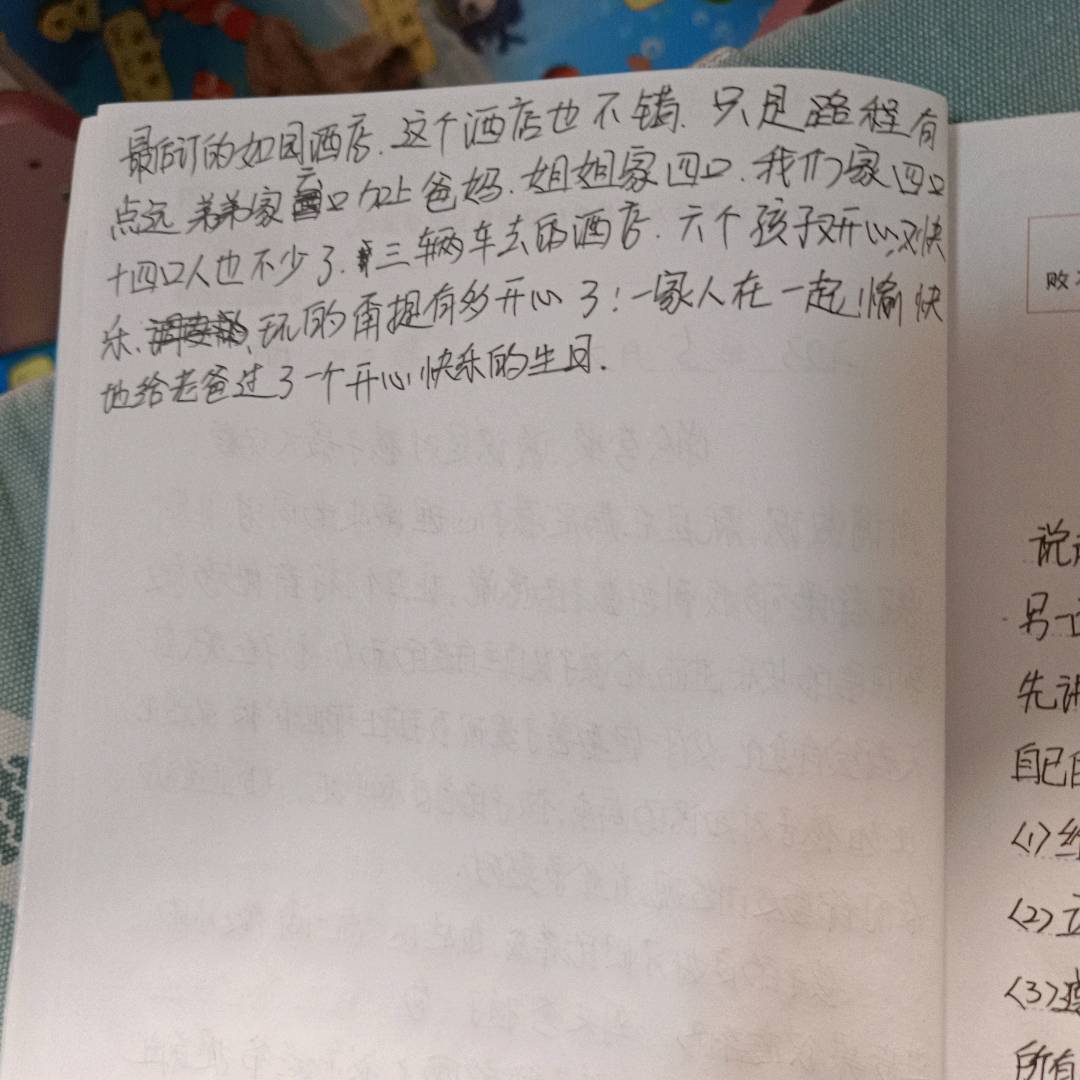 最后订的如园酒店.这个酒店也不错.只是路程有
点远 弟弟家六口加上爸妈.姐姐家四口.我们家四口
十四口人也不少了.三辆车去的酒店.六个孩子又开心又快
乐、玩的甭提有多开心了!一家人在一起愉快
地给老爸过了一个开心快乐的生日.
败
说
另一
先讲
自己
<1>
<2>
<3>
所有